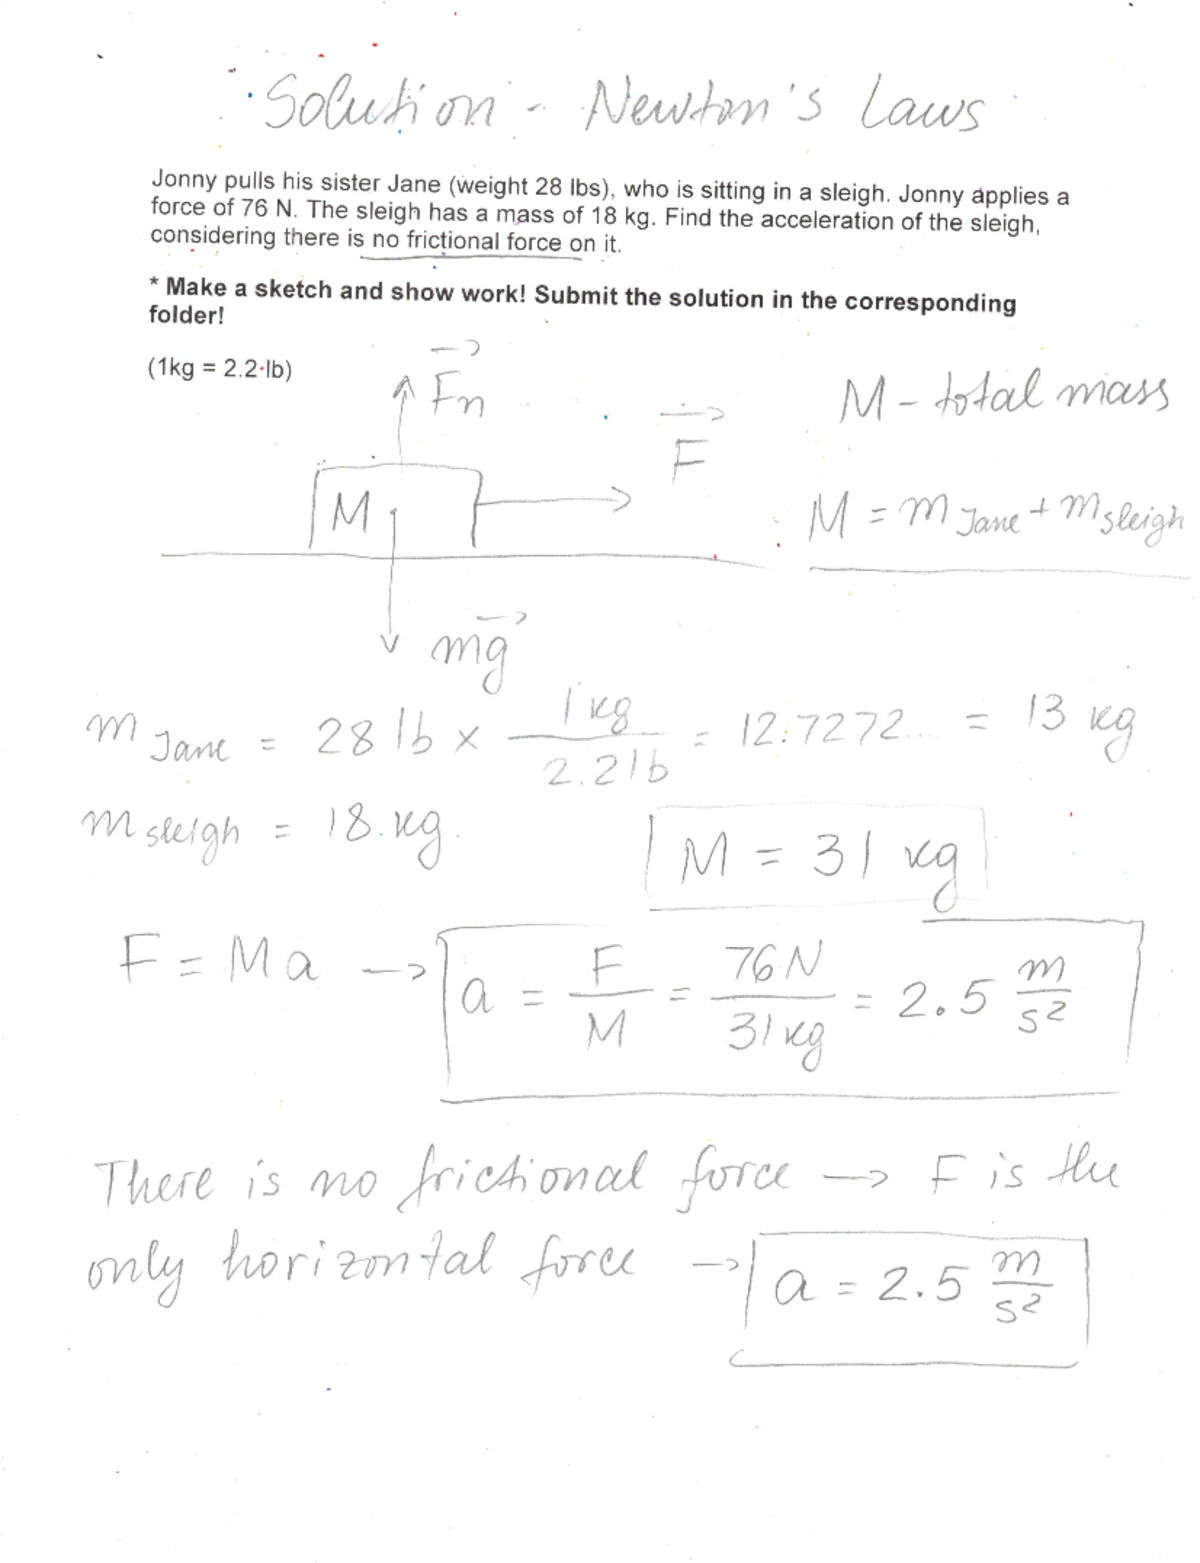 Solution - Newton's Laws
Jonny pulls his sister Jane (weight 28 lbs), who is sitting in a sleigh. Jonny applies a
force of 76 N. The sleigh has a mass of 18 kg. Find the acceleration of the sleigh,
considering there is no frictional force on it.
* Make a sketch and show work! Submit the solution in the corresponding
folder!
(1kg = 2.2·lb)
Fn
F
M - total mass
M
M = m Jane + m sleigh
mg
m Jane = 28 lb x 1 kg / 2.2 lb = 12.7272... = 13 kg
m sleigh = 18 kg
M = 31 kg
F = Ma → a = F / M = 76 N / 31 kg = 2.5 m / s²
There is no frictional force → F is the
only horizontal force → a = 2.5 m / s²